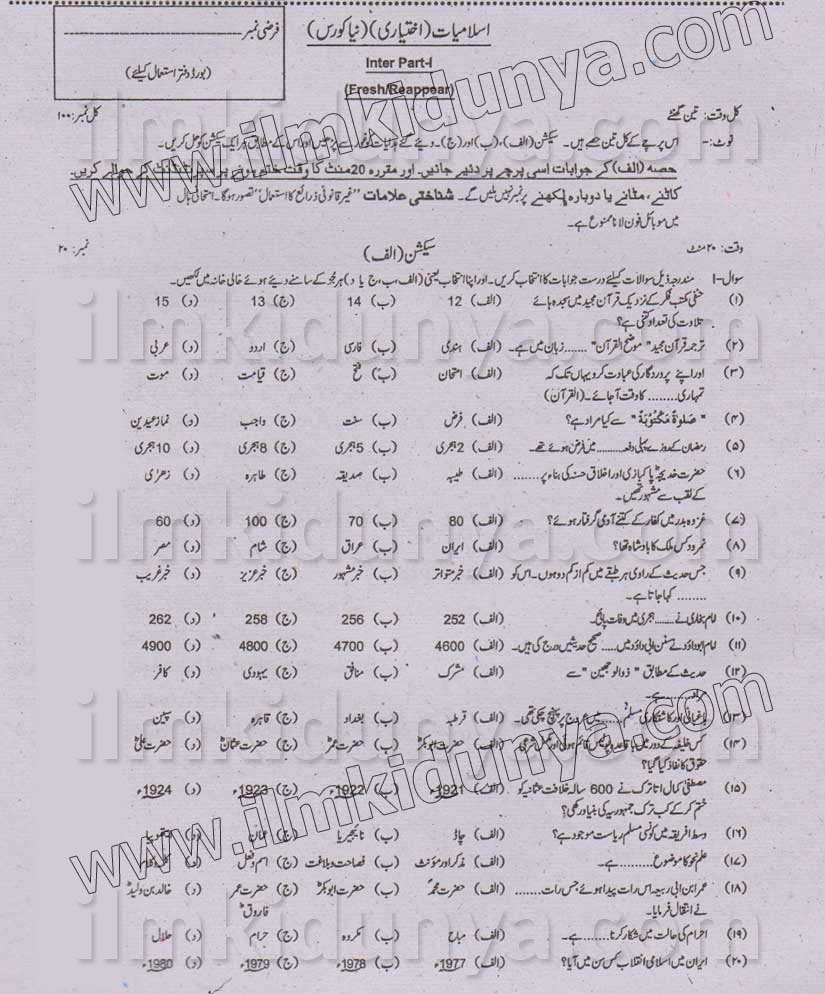 اسلامیات (اختیاری) (نیا کورس)
فرضی نمبر
Inter Part-I
(بورڈ دفتر استعمال کیلئے)
(Fresh/Reappear)
کل وقت: تین گھنٹے
کل نمبر: ۱۰۰
نوٹ:- اس پرچے کے کل تین حصے ہیں۔ سیکشن (الف)، (ب) اور (ج)۔ دیئے گئے اس کے مطابق ہر ایک سیکشن کو حل کریں۔
حصہ (الف) کے جوابات اسی پرچے پر دئیے جائیں۔ اور مقررہ 20 منٹ کا وقت ختم کے حوالے کریں۔
کاٹنے، مٹانے یا دوبارہ لکھنے پر نمبر نہیں ملیں گے۔ شناختی علامات "غیر قانونی ذرائع کا استعمال" تصور ہوگا۔ امتحانی ہال
میں موبائل فون لانا ممنوع ہے۔
وقت: ۲۰ منٹ
سیکشن (الف)
نمبر: ۲۰
سوال-I مندرجہ ذیل سوالات کیلئے درست جوابات کا انتخاب کریں۔ اور اپنا انتخاب یعنی (الف، ب، ج یا د) ہر جُز کے سامنے دیئے ہوئے خالی خانہ میں لکھیں۔
(۱) حنفی مکتب فکر کے نزدیک قرآن مجید میں سجدہ ہائے (الف) 12 (ب) 14 (ج) 13 (د) 15
تلاوت کی تعداد کتنی ہے؟
(۲) ترجمہ قرآن مجید "موضح القرآن" ....... زبان میں ہے۔ (الف) ہندی (ب) فارسی (ج) اردو (د) عربی
(۳) اور اپنے پروردگار کی عبادت کرو یہاں تک کہ (الف) امتحان (ب) فتح (ج) قیامت (د) موت
تمہاری ........ کا وقت آجائے۔ (القرآن)
(۴) "صَلٰوۃٌ مَکْتُوْبَۃٌ" سے کیا مراد ہے؟ (الف) فرض (ب) سنت (ج) واجب (د) نماز عیدین
(۵) رمضان کے روزے پہلی دفعہ ........ میں فرض ہوئے تھے۔ (الف) 2 ہجری (ب) 5 ہجری (ج) 8 ہجری (د) 10 ہجری
(۶) حضرت خدیجہؓ پاکبازی اور اخلاق حسنہ کی بناء پر ....... (الف) طیبہ (ب) صدیقہ (ج) طاہرہ (د) زھرٰی
کے لقب سے مشہور تھیں۔
(۷) غزوہ بدر میں کفار کے کتنے آدمی گرفتار ہوئے؟ (الف) 80 (ب) 70 (ج) 100 (د) 60
(۸) نمرود کس ملک کا بادشاہ تھا؟ (الف) ایران (ب) عراق (ج) شام (د) مصر
(۹) جس حدیث کے راوی ہر طبقے میں کم از کم دو ہوں۔ اس کو (الف) خبر متواتر (ب) خبر مشہور (ج) خبر عزیز (د) خبر غریب
........ کہا جاتا ہے۔
(۱۰) امام بخاری نے ........ ہجری میں وفات پائی۔ (الف) 252 (ب) 256 (ج) 258 (د) 262
(۱۱) امام ابو داؤد نے سنن ابی داؤد میں ..... صحیح حدیثیں درج کی ہیں۔ (الف) 4600 (ب) 4700 (ج) 4800 (د) 4900
(۱۲) حدیث کے مطابق "ذوالوجھین" سے (الف) مشرک (ب) منافق (ج) یہودی (د) کافر
مراد ........ ہے۔
(۱۳) باغبانی اور کاشتکاری مسلم ...... میں عروج پر پہنچ چکی تھی۔ (الف) قرطبہ (ب) بغداد (ج) قاہرہ (د) سپین
(۱۴) کس خلیفہ کے دور میں باقاعدہ پولیس قائم ہوئی اور شہری (الف) حضرت ابوبکرؓ (ب) حضرت عمرؓ (ج) حضرت عثمانؓ (د) حضرت علیؓ
حقوق کا نفاذ کیا گیا؟
(۱۵) مصطفیٰ کمال اتاترک نے 600 سالہ خلافت عثمانیہ کو (الف) 1921ء (ب) 1922ء (ج) 1923ء (د) 1924ء
ختم کر کے کب ترک جمہوریہ کی بنیاد رکھی؟
(۱۶) وسط افریقہ میں کونسی مسلم ریاست موجود ہے؟ (الف) چاڈ (ب) نائجیریا (ج) عمان (د)
(۱۷) علم نحو کا موضوع ......... ہے۔ (الف) مذکر اور مؤنث (ب) فصاحت و بلاغت (ج) اسم و فعل (د) کلمہ و کلام
(۱۸) عمر ابن ابی ربیعہ اس رات پیدا ہوئے جس رات ...... (الف) حضرت محمدؐ (ب) حضرت ابوبکرؓ (ج) حضرت عمر (د) خالد بن ولیدؓ
نے انتقال فرمایا۔ فاروقؓ
(۱۹) احرام کی حالت میں شکار کرنا ........ ہے۔ (الف) مباح (ب) مکروہ (ج) حرام (د) حلال
(۲۰) ایران میں اسلامی انقلاب کس سن میں آیا؟ (الف) 1977ء (ب) 1978ء (ج) 1979ء (د) 1980ء
www.ilmkidunya.com
www.ilmkidunya.com
ilmkidunya.com
ilmkidunya.com
ilmkidunya.com
ilmkidunya.com
ilmkidunya.com